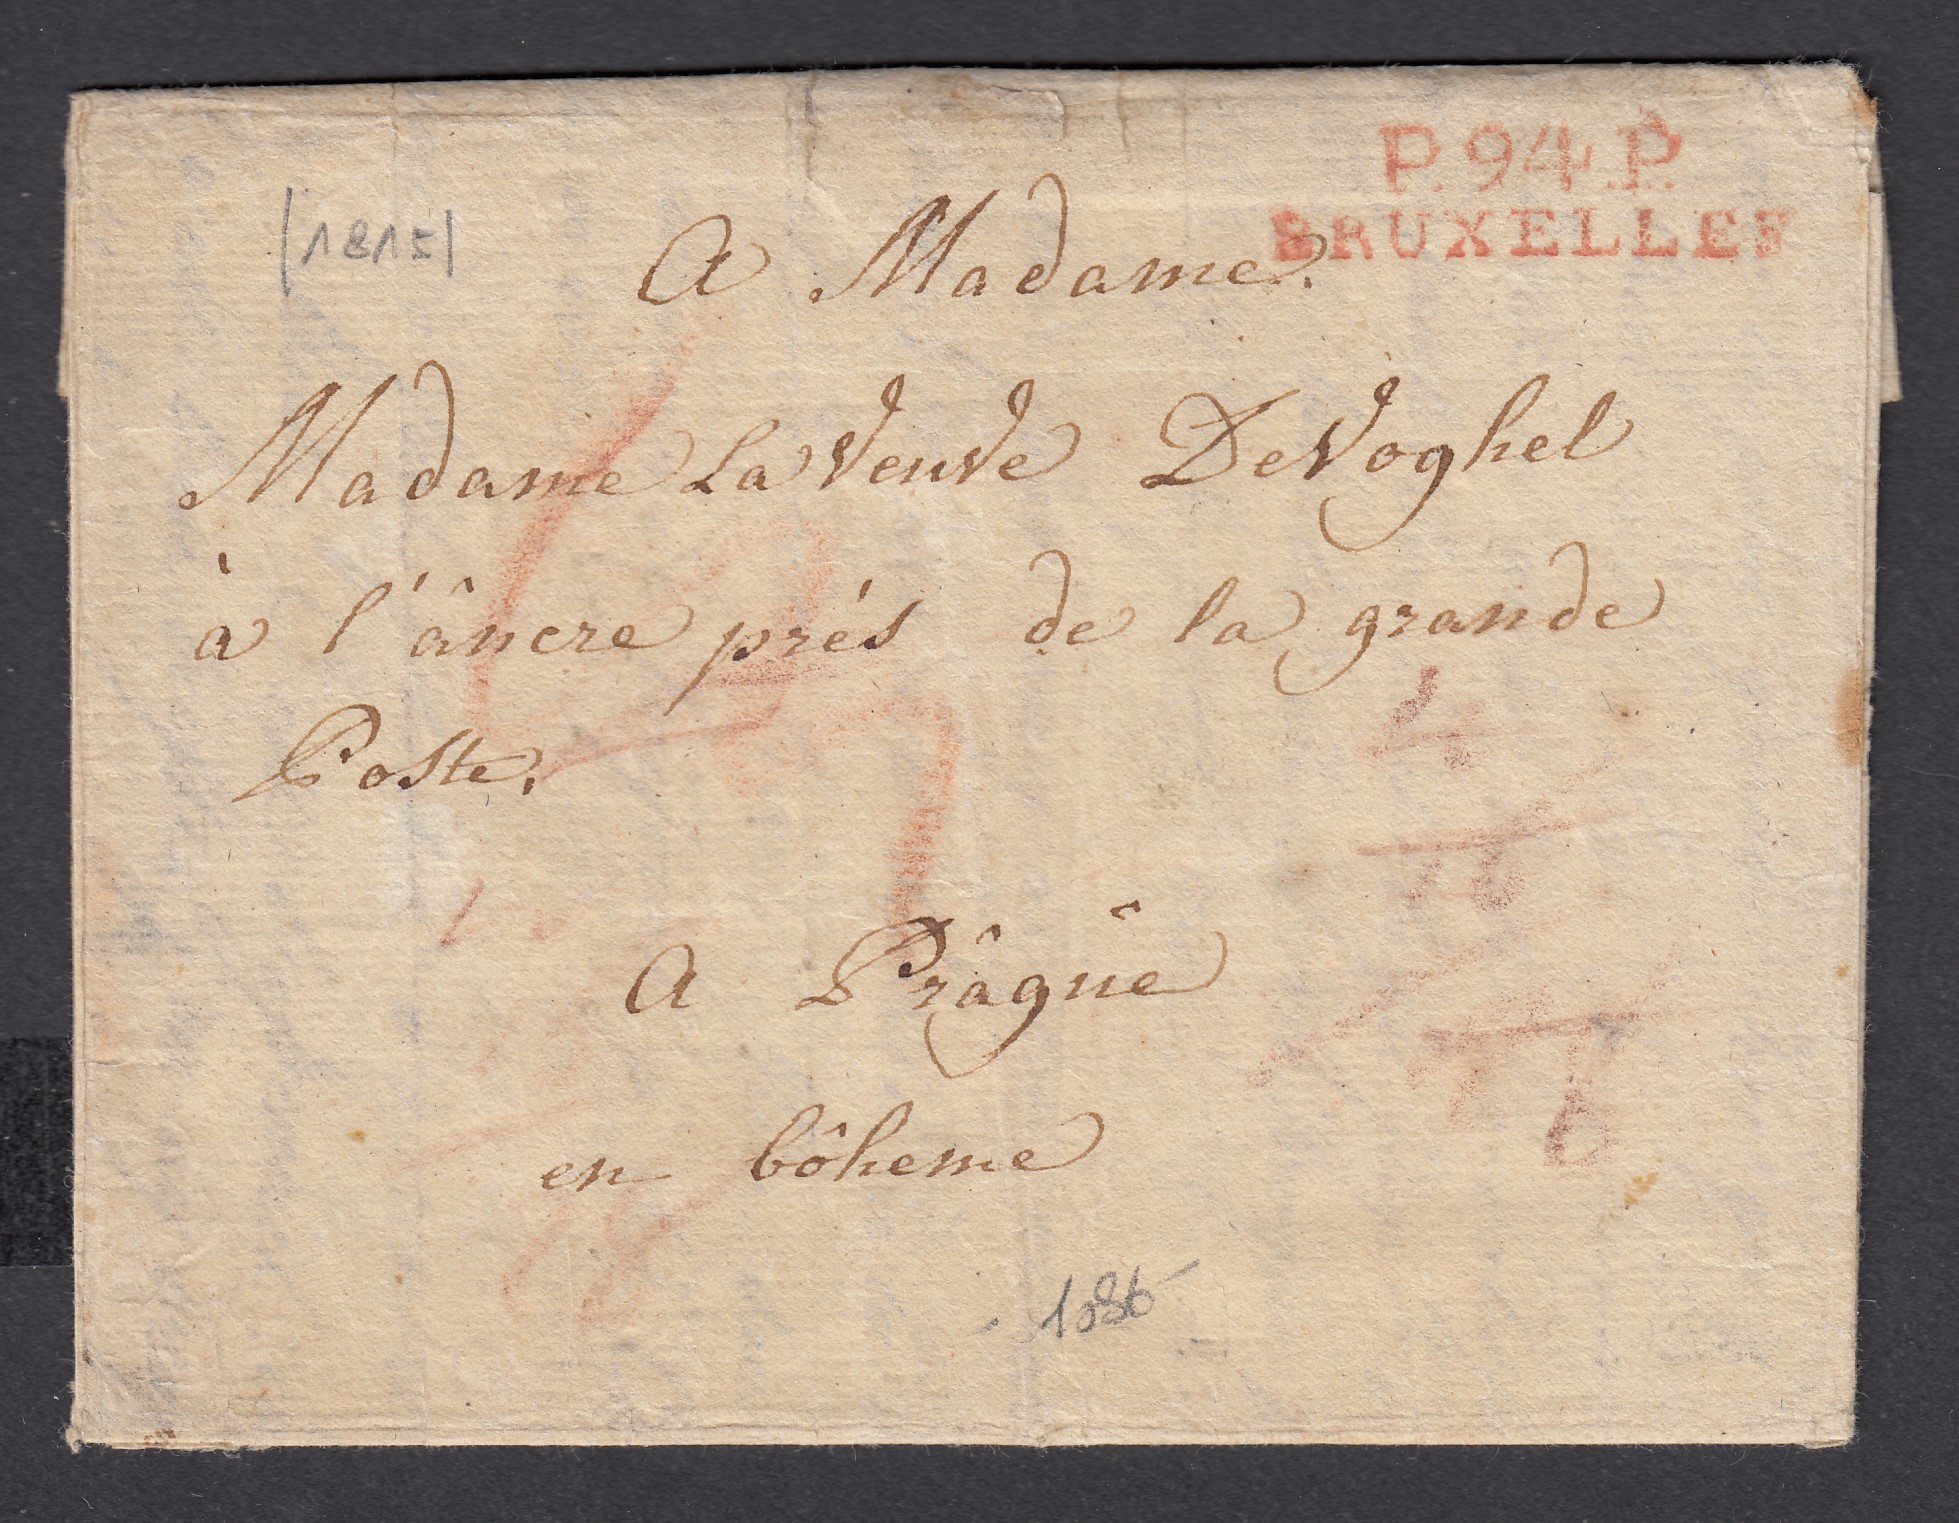 P. 94. P.
BRUXELLES
(1815)
A Madame.
Madame La Veuve De Voghel
à l'âncre prés de la grande
Poste.
A Prâgüe
en bôheme
1086